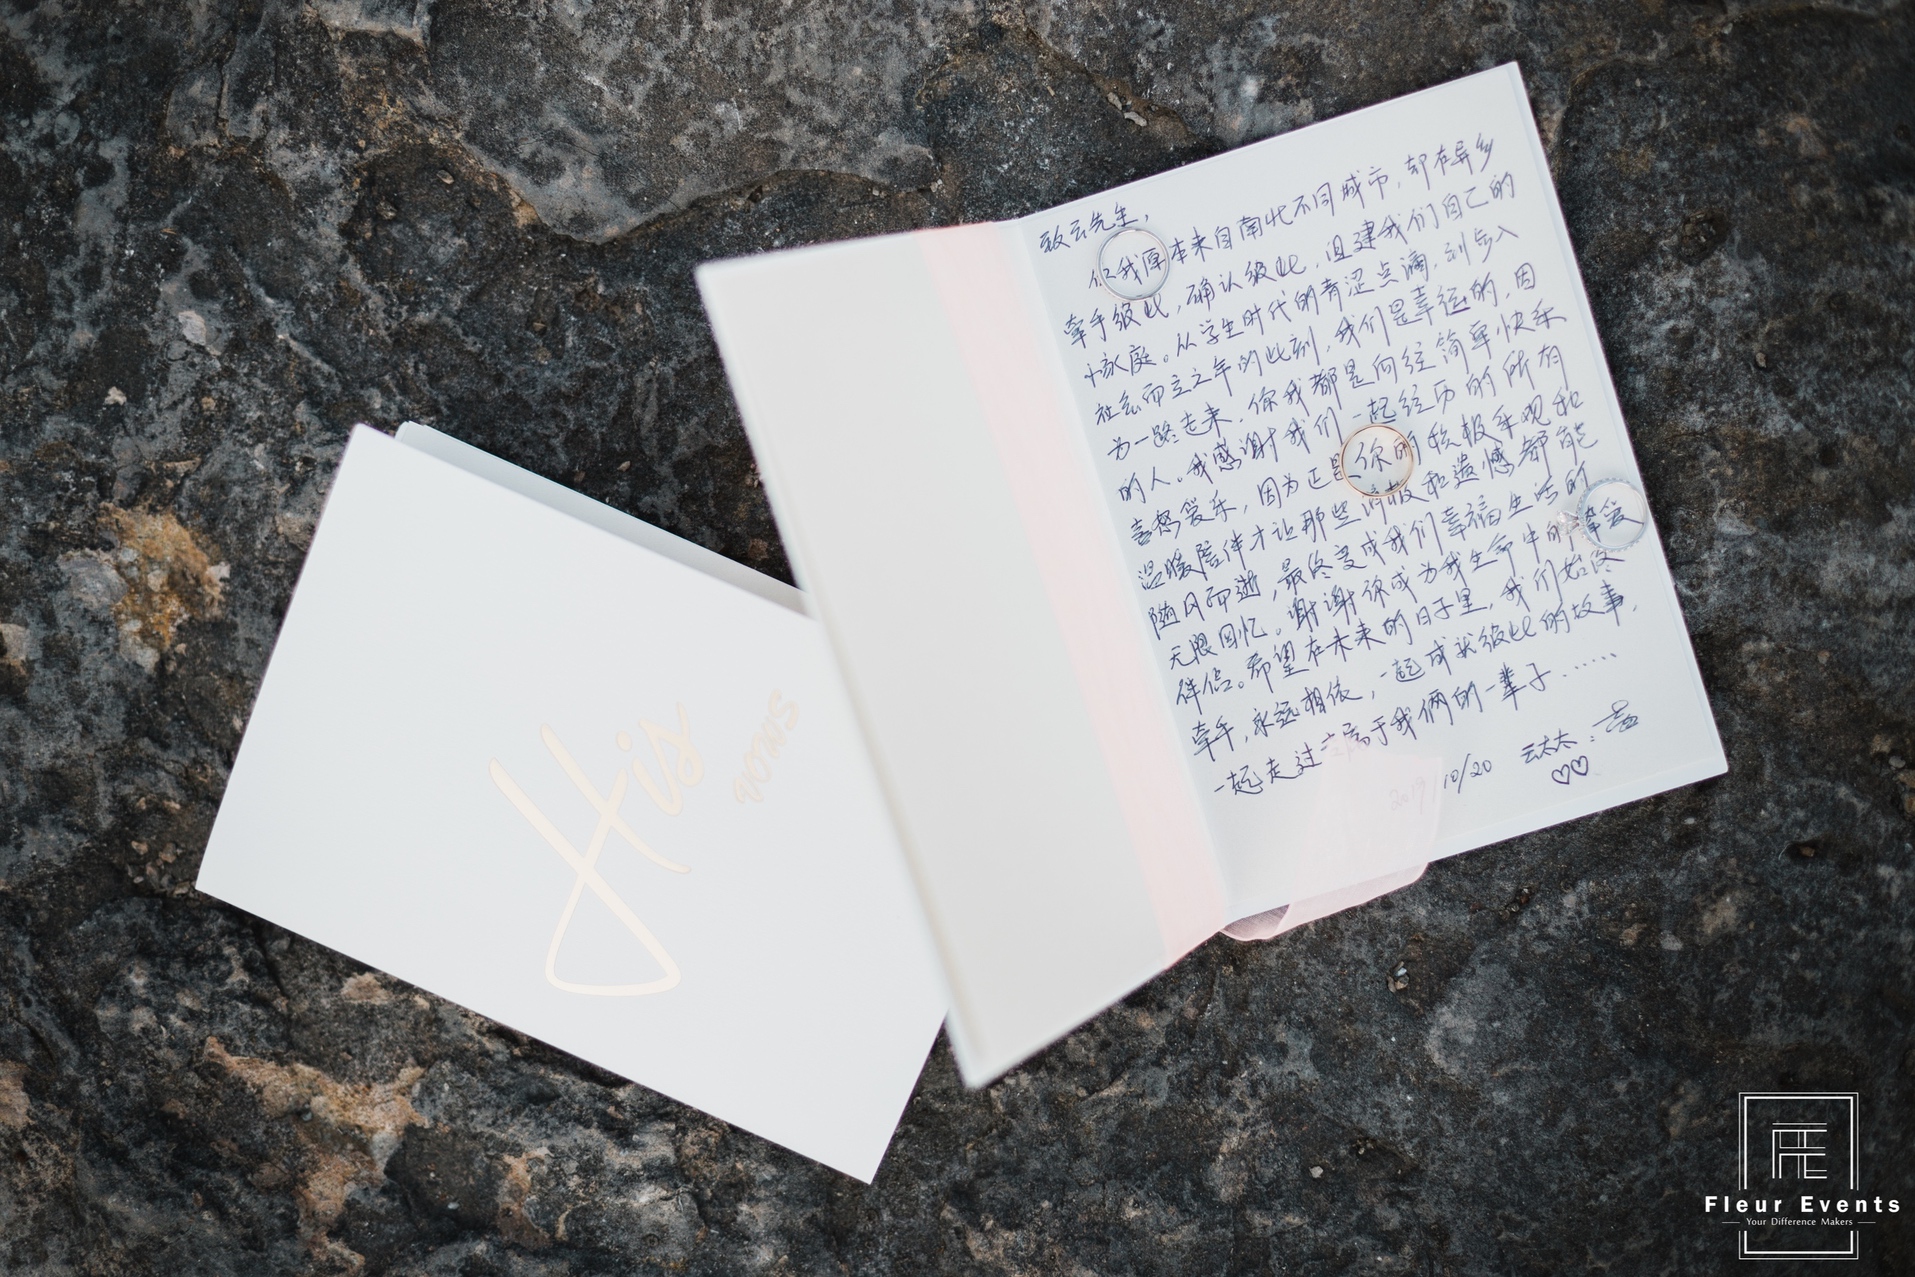 His
vows
致云先生,
你我原本来自南北不同城市,却在异乡
牵手彼此,确认彼此,组建我们自己的
小家庭。从学生时代的青涩点滴,到步入
社会而立之年的此刻,我们是幸运的,因
为一路走来,你我都是向往简单快乐
的人。我感谢我们一起经历的所有
喜怒哀乐,因为正是你的积极乐观和
温暖陪伴才让那些消极和遗憾都能
随风而逝,最终变成我们幸福生活的
无限回忆。谢谢你成为我生命中的挚爱
伴侣。希望在未来的日子里,我们始终
牵手,永远相依,一起成就彼此的故事,
一起走过属于我俩的一辈子……
云太太:
2019/10/20
Fleur Events
Your Difference Makers